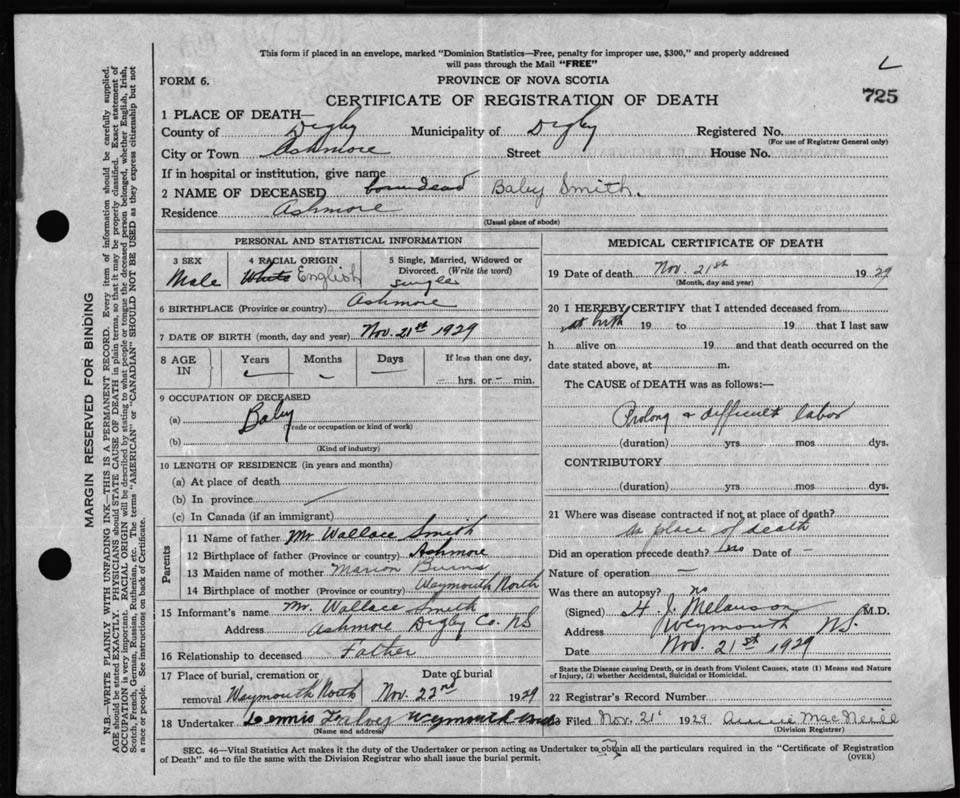 This form if placed in an envelope, marked "Dominion Statistics—Free, penalty for improper use, $300," and properly addressed
will pass through the Mail "FREE"
FORM 6.
PROVINCE OF NOVA SCOTIA
L
CERTIFICATE OF REGISTRATION OF DEATH
725
1 PLACE OF DEATH—
County of Digby Municipality of Digby Registered No.
(For use of Registrar General only)
City or Town Ashmore Street House No.
If in hospital or institution, give name
2 NAME OF DECEASED borndead Baby Smith.
Residence Ashmore
(Usual place of abode)
PERSONAL AND STATISTICAL INFORMATION
3 SEX 4 RACIAL ORIGIN 5 Single, Married, Widowed or
Divorced. (Write the word)
Male White English single
6 BIRTHPLACE (Province or country) Ashmore
7 DATE OF BIRTH (month, day and year) Nov. 21st 1929
8 AGE IN Years Months Days If less than one day,
— — — hrs. or — min.
9 OCCUPATION OF DECEASED
(a) Baby
(Trade or occupation or kind of work)
(b)
(Kind of industry)
10 LENGTH OF RESIDENCE (in years and months)
(a) At place of death
(b) In province
(c) In Canada (if an immigrant)
Parents
11 Name of father Mr Wallace Smith
12 Birthplace of father (Province or country) Ashmore
13 Maiden name of mother Marion Burns
14 Birthplace of mother (Province or country) Waymouth North
15 Informant's name Mr. Wallace Smith
Address Ashmore Digby Co. NS
16 Relationship to deceased Father
17 Place of burial, cremation or Date of burial
removal Waymouth North Nov. 22nd 1929
18 Undertaker Dennis Weymouth
(Name and address)
MEDICAL CERTIFICATE OF DEATH
19 Date of death Nov. 21st 1929
(Month, day and year)
20 I HEREBY CERTIFY that I attended deceased from
at birth 19 to 19 that I last saw
h alive on 19 and that death occurred on the
date stated above, at m.
The CAUSE of DEATH was as follows:—
Prolong & difficult labor
(duration) yrs mos dys.
CONTRIBUTORY
(duration) yrs mos dys.
21 Where was disease contracted if not at place of death?
place of death
Did an operation precede death? Date of —
Nature of operation —
Was there an autopsy? no
(Signed) H. J. Melanson M.D.
Address Weymouth N.S.
Date Nov. 21st 1929
State the Disease causing Death, or in death from Violent Causes, state (1) Means and Nature
of Injury, (2) whether Accidental, Suicidal or Homicidal.
22 Registrar's Record Number
Filed Nov. 21st 1929 Annie MacNeill
(Division Registrar)
SEC. 46—Vital Statistics Act makes it the duty of the Undertaker or person acting as Undertaker to obtain all the particulars required in the "Certificate of Registration
of Death" and to file the same with the Division Registrar who shall issue the burial permit.
(OVER)
MARGIN RESERVED FOR BINDING
N.B.—WRITE PLAINLY WITH UNFADING INK—THIS IS A PERMANENT RECORD. Every item of information should be carefully supplied.
AGE should be stated EXACTLY. PHYSICIANS should STATE CAUSE OF DEATH in plain terms, so that it may be properly classified. Exact statement of
OCCUPATION is very important. RACIAL ORIGIN will be described by stating to what people or tongue the deceased person belonged, whether English, Irish,
Scotch, French, German, Russian, Ruthenian, etc. The terms "AMERICAN" or "CANADIAN" SHOULD NOT BE USED as they express citizenship but not
a race or people. See instructions on back of Certificate.